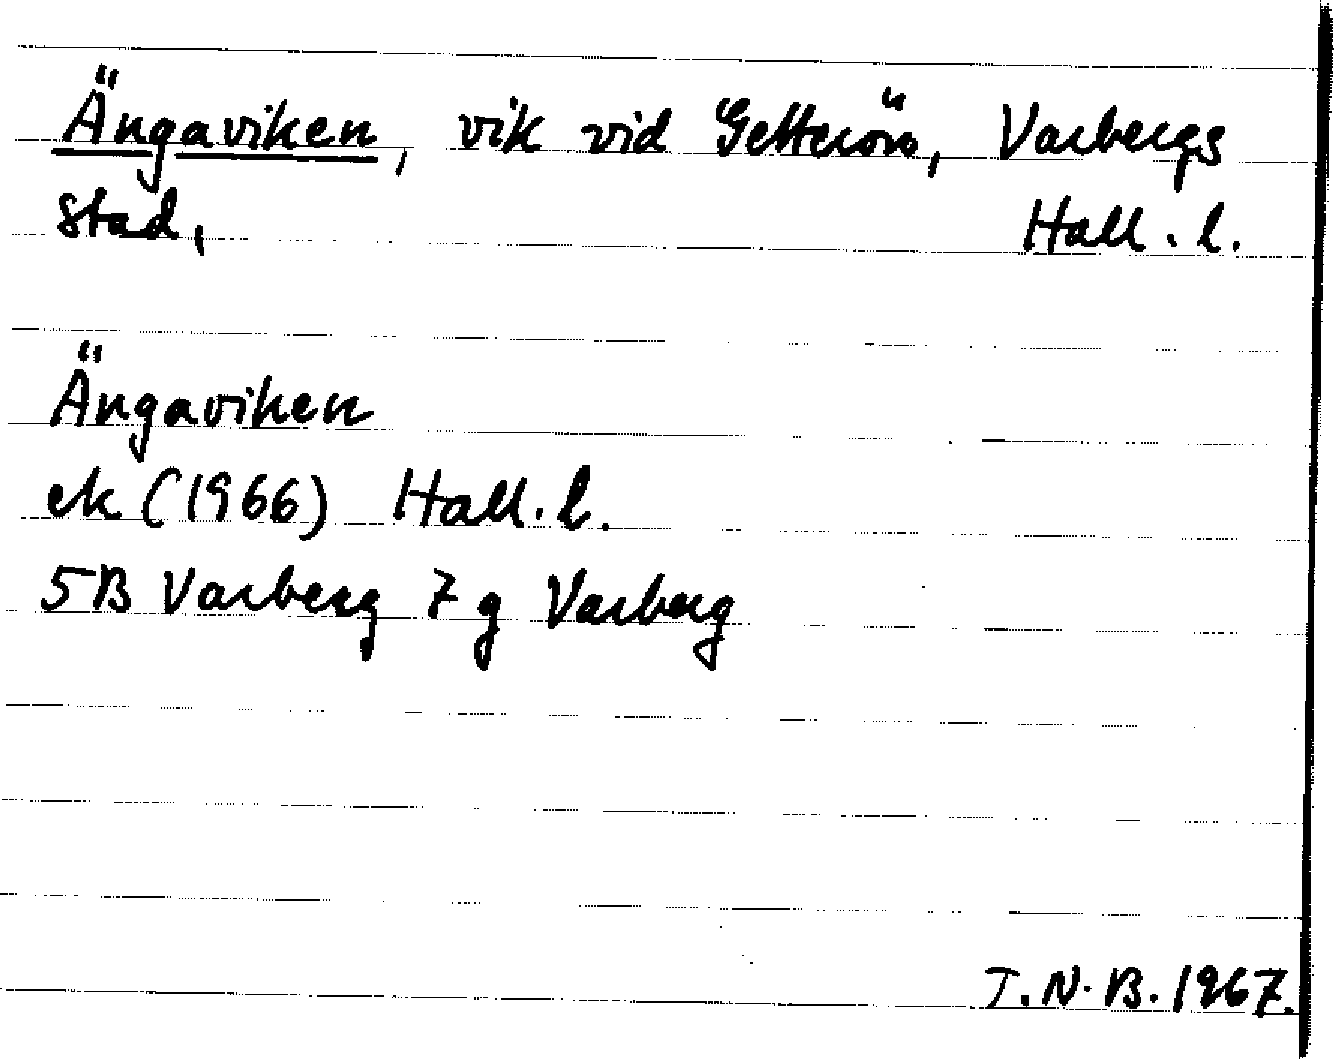 Ängaviken, vik vid Getterön, Varbergs
stad, Hall. l.
Ängaviken
ek (1966) Hall. l.
5B Varberg 7 g Varberg
T. N. B. 1967.